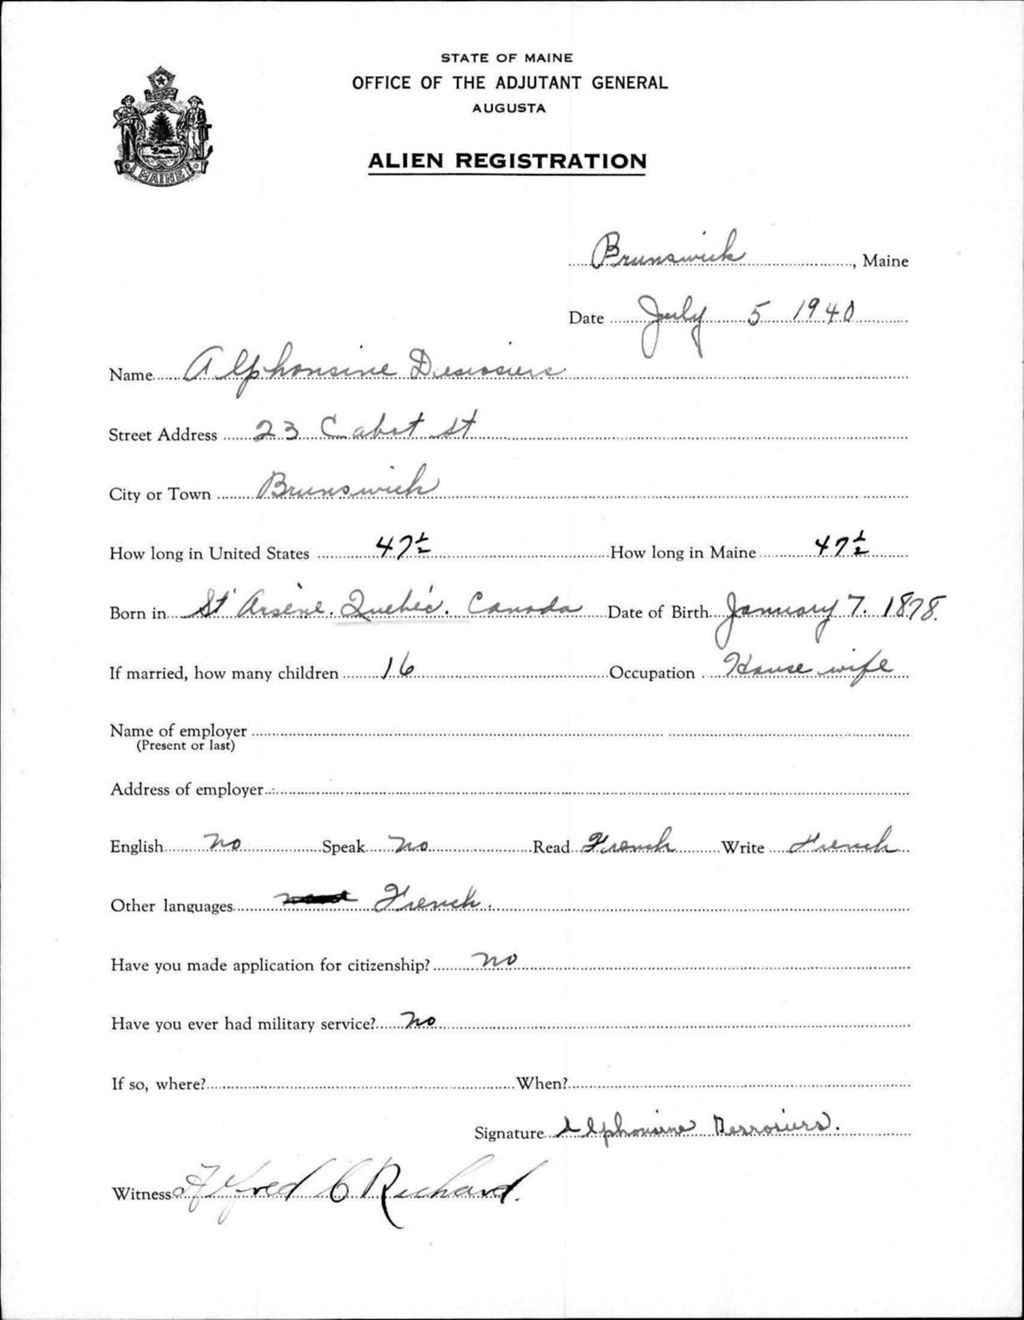 STATE OF MAINE
OFFICE OF THE ADJUTANT GENERAL
AUGUSTA
ALIEN REGISTRATION
MAINE
Brunswick, Maine
Date July 5 1940
Name Alphonsine Desrosiers
Street Address 23 Cabot St
City or Town Brunswick
How long in United States 47½ How long in Maine 47½
Born in St Arsène. Quebéc. Canada Date of Birth January 7. 1878.
If married, how many children 16 Occupation House wife
Name of employer
(Present or last)
Address of employer
English no Speak no Read French Write French
Other languages French.
Have you made application for citizenship? no
Have you ever had military service? no
If so, where? When?
Signature Alphonsine Desrosiers.
Witness Alfred C Richard.